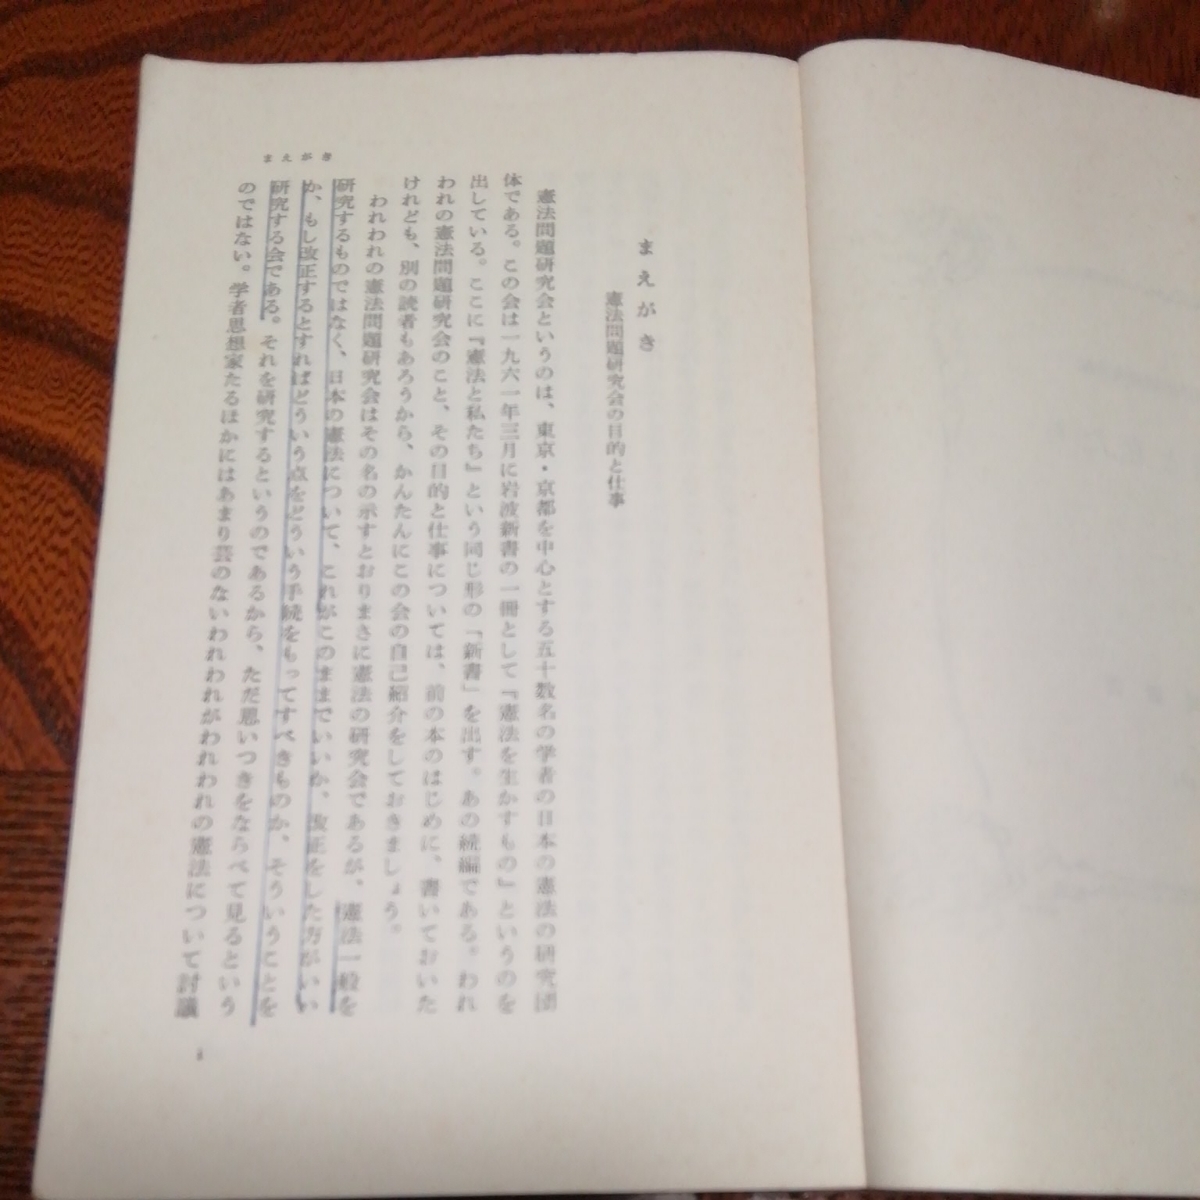 まえがき
憲法問題研究会の目的と仕事
憲法問題研究会というのは、東京・京都を中心とする五十数名の学者の日本の憲法の研究団
体である。この会は一九六一年三月に岩波新書の一冊として『憲法を生かすもの』というのを
出している。ここに『憲法と私たち』という同じ形の「新書」を出す。あの続編である。われ
われの憲法問題研究会のこと、その目的と仕事については、前の本のはじめに、書いておいた
けれども、別の読者もあろうから、かんたんにこの会の自己紹介をしておきましょう。
われわれの憲法問題研究会はその名の示すとおりまさに憲法の研究会であるが、憲法一般を
研究するものではなく、日本の憲法について、これがこのままでいいか、改正をした方がいい
か、もし改正するとすればどういう点をどういう手続をもってすべきものか、そういうことを
研究する会である。それを研究するというのであるから、ただ思いつきをならべて見るという
のではない。学者思想家たるほかにはあまり芸のないわれわれがわれわれの憲法について討議
まえがき